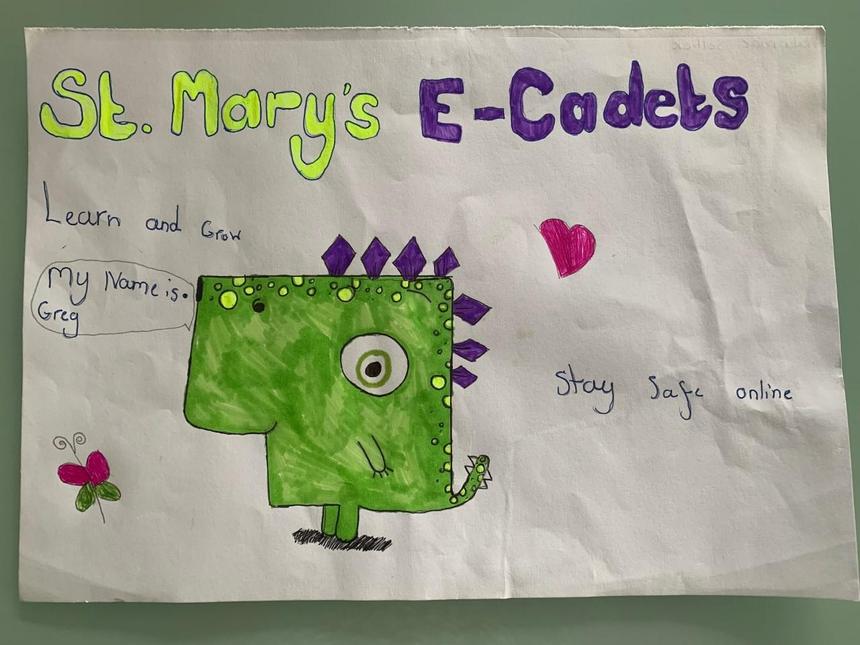 St. Mary's E-Cadets
Learn and Grow
My Name is.
Greg
Stay Safe online